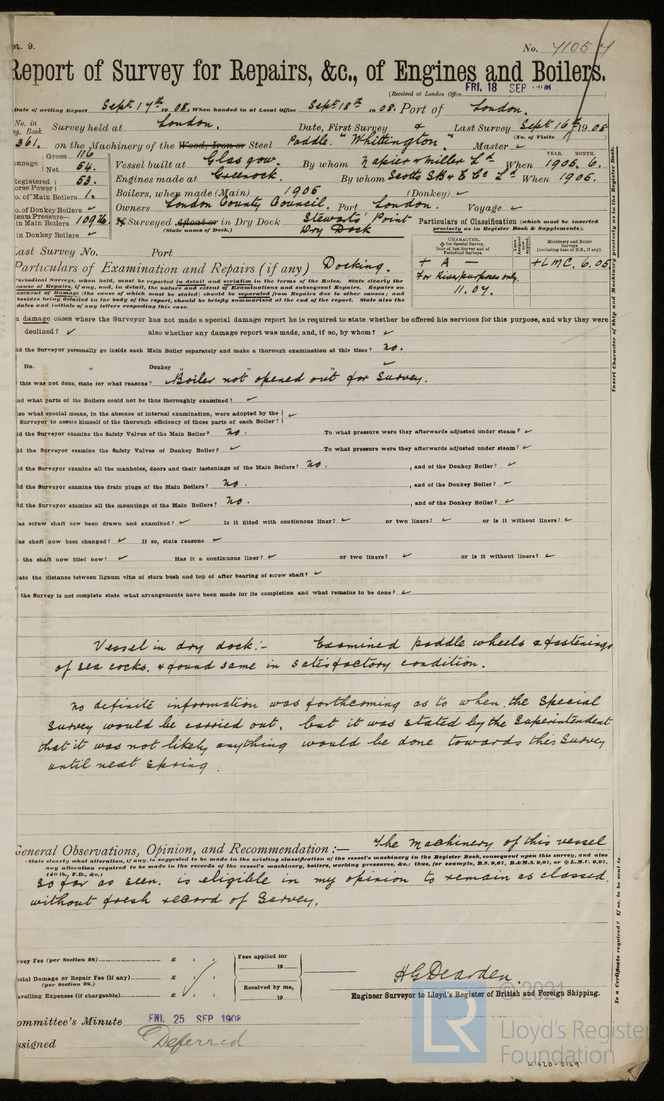 pt. 9.
No. 71054
Report of Survey for Repairs, &c., of Engines and Boilers.
(Received at London Office FRI. 18 SEP 1908
Date of writing Report Sept. 17th 1908. When handed in at Local Office Sept 18th 1908. Port of London.
No. in
g. Book. Survey held at London. Date, First Survey & Last Survey Sept 16th 1908
(No. of Visits
361. on the Machinery of the Wood, Iron or Steel Paddle "Whittington" Master ✓
Gross 116
Net 54.
Vessel built at Glasgow. By whom Napier & Miller Ld When 1905. 6.
YEAR. MONTH.
Registered 53.
Engines made at Greenock. By whom Scotts SB & E Co Ld When 1905.
Horse Power
No. of Main Boilers 1.
Boilers, when made (Main) 1905 (Donkey) ✓
No. of Donkey Boilers ✓
Owners London County Council. Port London. Voyage ✓
Steam Pressure—
in Main Boilers 109 lb.
in Donkey Boilers ✓
If Surveyed Afloat or in Dry Dock Stewarts' Point Dry Dock
(State name of Dock.)
Particulars of Classification (which must be inserted
precisely as in Register Book & Supplements).
Last Survey No. Port
CHARACTER.
Machinery and Boiler
Surveys
+ A —
+LMC. 6.05
For River purposes only.
11.07.
Particulars of Examination and Repairs (if any) Docking.
Periodical Surveys, when held, must be reported in detail and seriatim in the terms of the Rules. State clearly the
cause of Repairs, if any, and, in detail, the nature and extent of Examinations and subsequent Repairs. Repairs on
account of Damage (the cause of which must be stated) should be separated from Repairs due to other causes; and
besides being detailed in the body of the report, should be briefly summarised at the end of the report. State also the
dates and initials of any letters respecting this case.
n damage cases where the Surveyor has not made a special damage report he is required to state whether he offered his services for this purpose, and why they were
declined? ✓ also whether any damage report was made, and, if so, by whom? ✓
id the Surveyor personally go inside each Main Boiler separately and make a thorough examination at this time? no.
Do. " Donkey " " " ✓
this was not done, state for what reasons? Boiler not opened out for Survey.
nd what parts of the Boilers could not be thus thoroughly examined? ✓
so what special means, in the absence of internal examination, were adopted by the
Surveyor to assure himself of the thorough efficiency of those parts of each Boiler? ✓
id the Surveyor examine the Safety Valves of the Main Boiler? no. To what pressure were they afterwards adjusted under steam? ✓
id the Surveyor examine the Safety Valves of Donkey Boiler? ✓ To what pressure were they afterwards adjusted under steam? ✓
id the Surveyor examine all the manholes, doors and their fastenings of the Main Boilers? no. , and of the Donkey Boiler? ✓
id the Surveyor examine the drain plugs of the Main Boilers? no. , and of the Donkey Boiler? ✓
id the Surveyor examine all the mountings of the Main Boilers? no. , and of the Donkey Boiler? ✓
as screw shaft now been drawn and examined? ✓ Is it fitted with continuous liner? ✓ or two liners? ✓ or is it without liners? ✓
as shaft now been changed? ✓ If so, state reasons ✓
the shaft now fitted new? ✓ Has it a continuous liner? ✓ or two liners? ✓ or is it without liners? ✓
ate the distance between lignum vitæ of stern bush and top of after bearing of screw shaft? ✓
the Survey is not complete state what arrangements have been made for its completion and what remains to be done? ✓
Vessel in dry dock:- Examined paddle wheels & fastenings
of sea cocks. & found same in satisfactory condition.
No definite information was forthcoming as to when the Special
Survey would be carried out, but it was stated by the Superintendent
that it was not likely anything would be done towards this Survey
until next Spring.
General Observations, Opinion, and Recommendation :— The machinery of this vessel
(State clearly what alteration, if any, is suggested to be made in the existing classification of the vessel's machinery in the Register Book, consequent upon this survey, and also
any alteration required to be made in the records of the vessel's machinery, boilers, working pressures, &c.; thus, for example, B.S. 9,07, B.&M.S. 9,07, or L.M.C. 9,07,
140 lb., F.D., &c.)
so far as seen. is eligible in my opinion to remain as classed,
without fresh record of Survey.
rvey Fee (per Section 28) £ : :
Fees applied for
19
ecial Damage or Repair Fee (if any) £ : :
(per Section 28.)
avelling Expenses (if chargeable) £ : :
Received by me,
19
H G Dearden.
Engineer Surveyor to Lloyd's Register of British and Foreign Shipping.
ommittee's Minute FRI. 25 SEP 1908
ssigned Deferred
Insert Character of Ship and Machinery precisely as in the Register Book.
Is a Certificate required? If so, to be sent to
© 2021
LR
Lloyd's Register
Foundation
W1620-0169